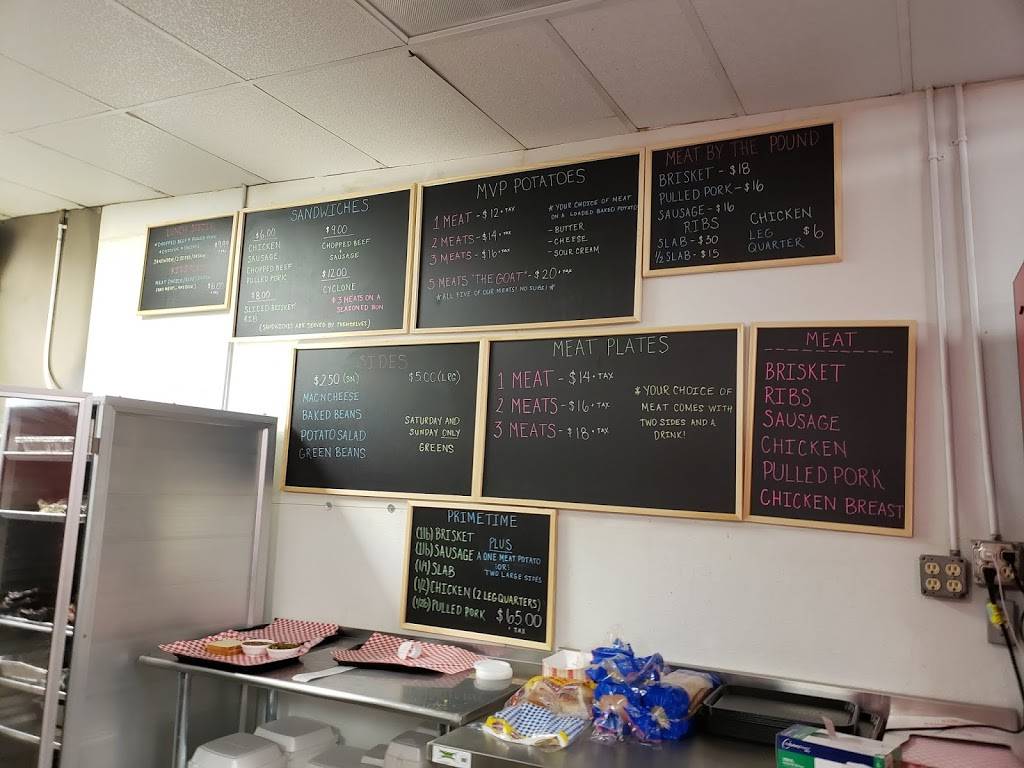 LUNCH SPECIAL
SANDWICHES
$6.00
CHICKEN
SAUSAGE
CHOPPED BEEF
PULLED PORK
$8.00
SLICED BRISKET
RIB
$9.00
CHOPPED BEEF
SAUSAGE
$12.00
CYCLONE
* 3 MEATS ON A
SEASONED BUN
(SANDWICHES ARE SERVED BY THEMSELVES)
MVP POTATOES
1 MEAT - $12 + TAX
2 MEATS - $14 + TAX
3 MEATS - $16 + TAX
5 MEATS "THE GOAT" - $20 + TAX
* ALL FIVE OF OUR MEATS! NO SUBS! *
* YOUR CHOICE OF MEAT
ON A LOADED BAKED POTATO
- BUTTER
- CHEESE
- SOUR CREAM
MEAT BY THE POUND
BRISKET - $18
PULLED PORK - $16
SAUSAGE - $16
RIBS
SLAB - $30
½ SLAB - $15
CHICKEN
LEG
QUARTER $6
SIDES
$2.50 (SM)
MAC N CHEESE
BAKED BEANS
POTATO SALAD
GREEN BEANS
$5.00 (LRG)
SATURDAY AND
SUNDAY ONLY
GREENS
MEAT PLATES
1 MEAT - $14 + TAX
2 MEATS - $16 + TAX
3 MEATS - $18 + TAX
* YOUR CHOICE OF
MEAT COMES WITH
TWO SIDES AND A
DRINK!
MEAT
BRISKET
RIBS
SAUSAGE
CHICKEN
PULLED PORK
CHICKEN BREAST
PRIMETIME
(1lb) BRISKET
(1lb) SAUSAGE
(1/4) SLAB
(1/2) CHICKEN (2 LEG QUARTERS)
PULLED PORK
PLUS
A ONE MEAT POTATO
(OR)
TWO LARGE SIDES
$65.00
+ TAX